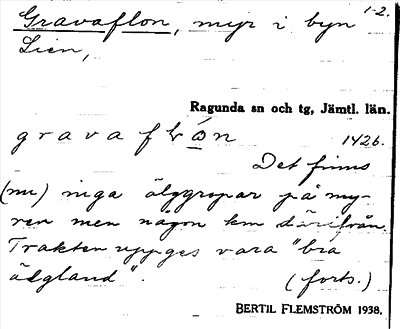 Gravaflon, myr i byn 1-2.
Lien,
Ragunda sn och tg, Jämtl. län.
gravaflɷ́n 1426.
Det finns
(nu) inga älggropar på my-
ren men någon km därifrån.
Trakten uppges vara "bra
älgland". (forts.)
BERTIL FLEMSTRÖM 1938.